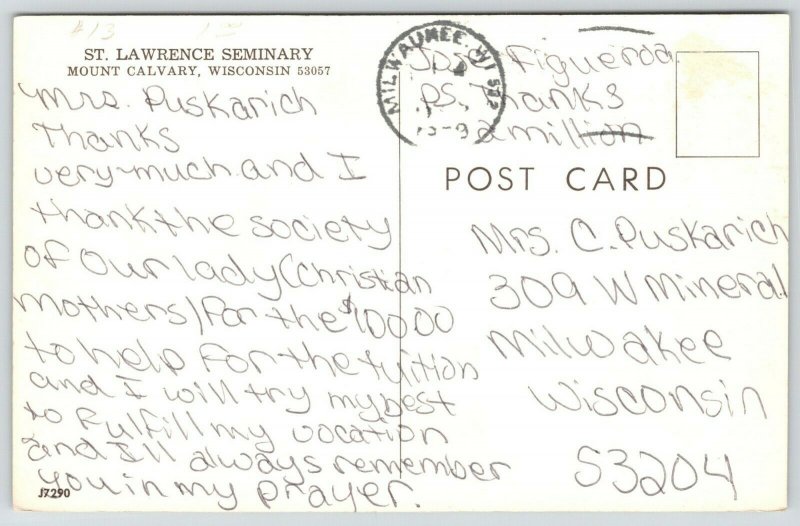 #13
ST. LAWRENCE SEMINARY
MOUNT CALVARY, WISCONSIN 53057
Mrs. Puskarich
Thanks
very much and I
thank the society
of Our lady (Christian
mothers) for the $100 00
to help for the tuition
and I will try my best
to fulfill my vocation
and I'll always remember
you in my prayer.
J7290
MILWAUKEE, WI 532
Jose Figueroa
PS. Thanks
a million
POST CARD
Mrs. C. Puskarich
309 W Mineral
Milwakee
Wisconsin
53204